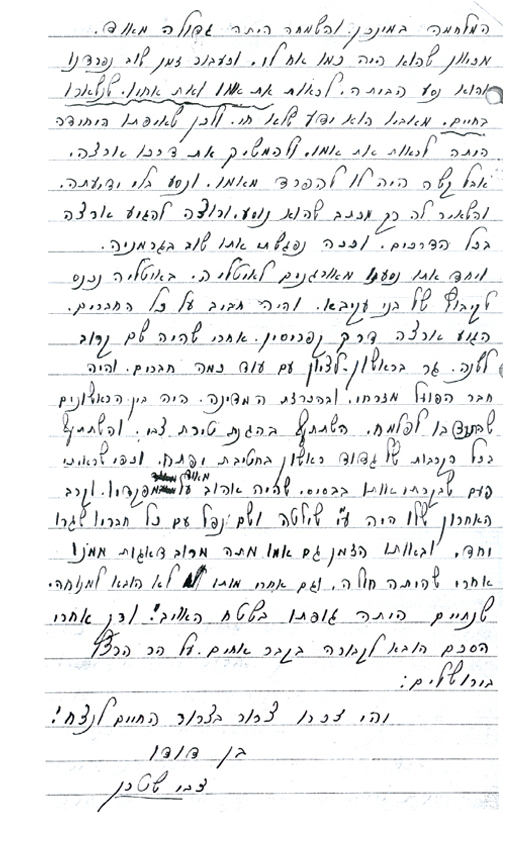 המלחמה במינכן. והשמחה היתה גדולה מאוד.
מכיון שהוא היה כמו אח לי. וכעבור זמן שוב נפרדנו
והוא נסע הביתה. לראות את אמו ואת אחיו. שנשארו
בחיים. מאביו הוא ידע שלא חי. ולכן שאיפתו היחידה
היתה לראות את אמו. ולהמשיך את דרכו ארצה.
אבל קשה היה לו להפרד מאמו. ונסע בלי ידיעתה.
והשאיר לה רק מכתב שהוא נוסע. ורוצה להגיע ארצה
בכל הדרכים. וככה נפגשתי אתו שוב בגרמניה.
ויחד אתו נסענו מאורגנים לאיטליה. באיטליה נכנס
לקיבוץ של בני עקיבא. והיה חביב על כל החברים.
הגיע ארצה דרך קפריסין. אחרי שהיה שם קרוב
לשנה. גר בראשון-לציון עם עוד כמה חברים. והיה
חבר הפועל מזרחי. ובהכרזת המדינה. היה בין הראשונים
שהתנדבו לפלמח. השתתף בהגנת טירת צבי. והשתתף
בכל הקרבות של גדוד ראשון בחטיבת יפתח. וכפי שראיתי
פעם שבקרתי אותו בבסיס. שהיה אהוב מאוד על מפקדיו. וקרב
האחרון שלו היה ע״י שילטה ושם נפל עם כל חבריו שגרו
יחד. ובאותו הזמן גם אמו מתה מרוב דאגות ממנו
אחרי שהיתה חולה. וגם אחרי מותו לא הובא למנוחה.
שנתיים היתה גופתו בשטח האויב! ורק אחרי
הסכם הובא לקבורה בקבר אחים. על הר הרצל
בירושלים:
והי זכרו צרור בצרור החיים לנצח!
בן דודו
צבי שטרן